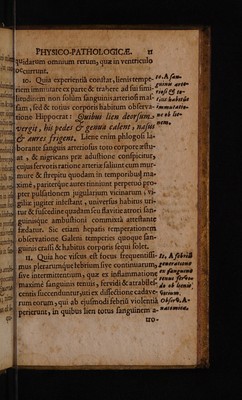 PHYSICO-PATHOLOGICÆ. 11
quidarum omnium rerum, quæ in ventriculo
occurrunt.
10. Quia experientiâ constat, lienis tempe-
riem immutare ex parte & trahere ad sui simi-
litudinem non solùm sanguinis arteriosi mas-
sam, sed & totius corporis habitum observa-
tione Hippocrat: Quibus lien deorsùm
vergit, his pedes & genua calent, nasus
& aures frigent. Lienis enim phlogosi la-
borante sanguis arteriosus toto corpore æstu-
at, & nigricans præ adustione conspicitur,
cujus fervoris ratione arteriæ saliunt cum mur-
mure & strepitu quodam in temporibus maximè,
pariterque aures tinniunt perpetuo pro-
pter pulsationem jugularium vicinarum, vi-
giliæ jugiter infestant, universus habitus uri-
tur & fuscedine quadam seu flavitie atrori san-
guinisque ambustioni communi attestante
fœdatur. Sic etiam hepatis temperationem
observatione Galeni temperies quoque san-
guinis crassi & habitus corporis sequi solet.
11. Quia hoc viscus est focus frequentissi-
mus plerarumque febrium sive continuarum,
sive intermittentium, quæ ex inflammatione
maximè sanguinis tenuis, fervidi & atrabiles-
centis succenduntur, uti ex dissectione cadave-
rum eorum, qui ab ejusmodi febrili violentiâ
perierunt, in quibus lien totus sanguinem a-
tro-
10. A san-
guinis arte-
riosi & to-
tius habitus
immutatio-
ne ab lie-
nem.
11. A febrili
generatione
ex sanguinis
tenuis fervore
ab lienis
Observ. A-
natomica.